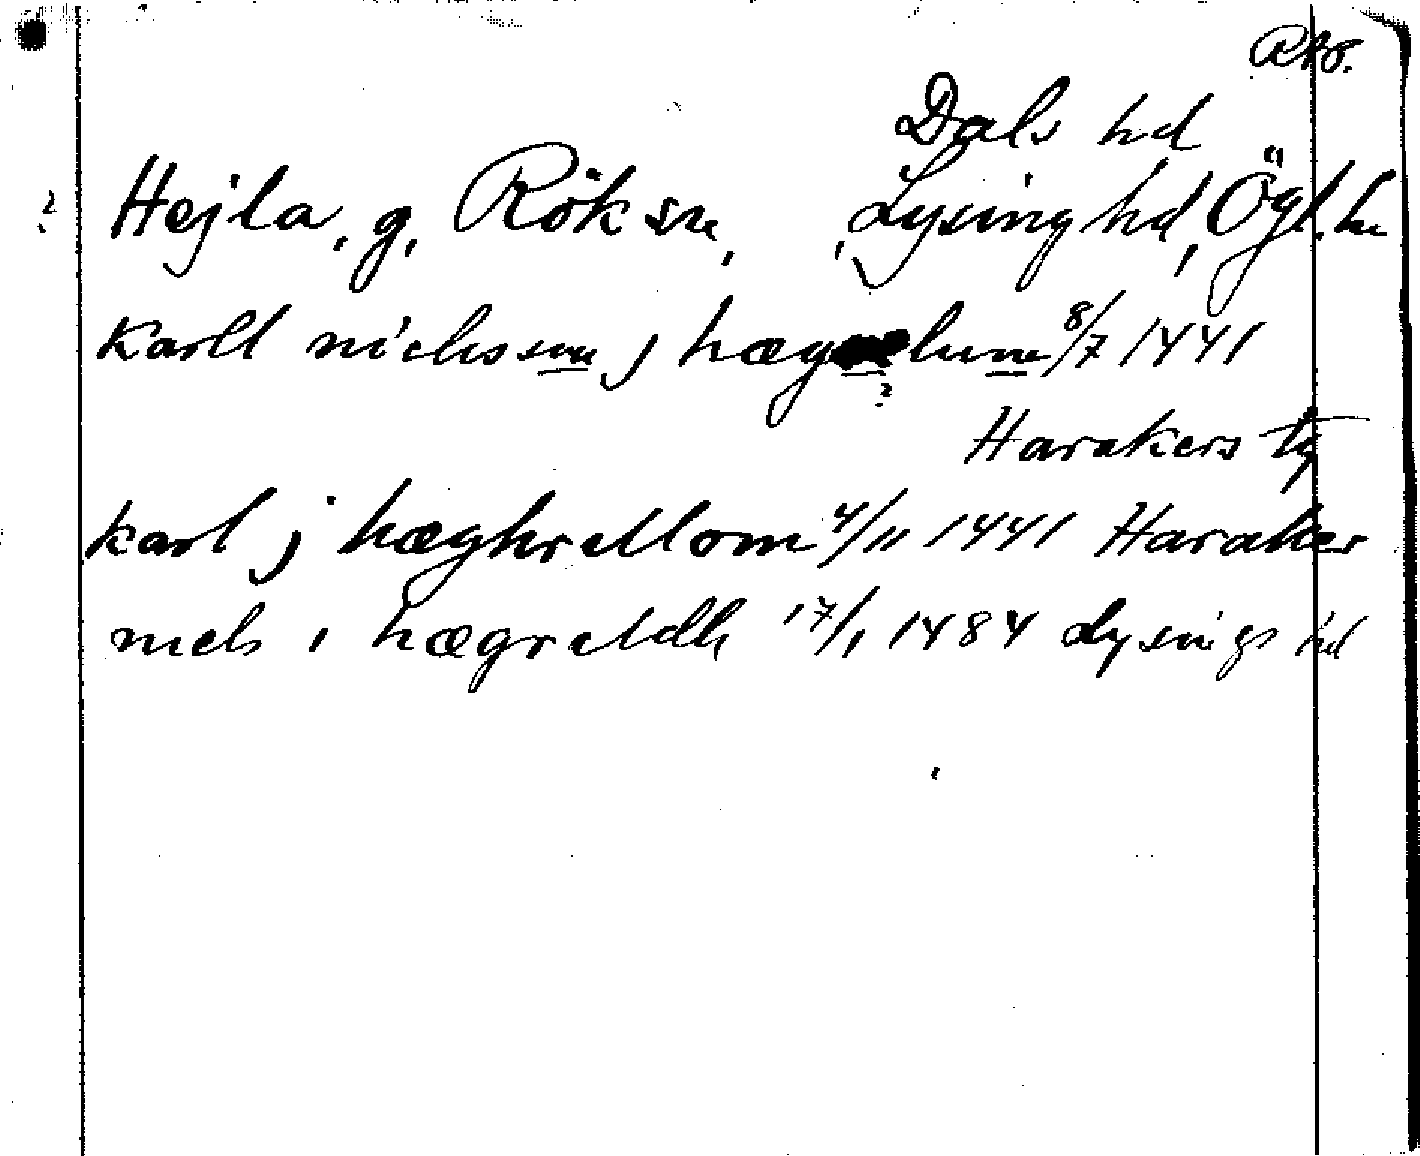 Dals hd
Hejla, g, Rök sn, Lysing hd, Ögl. län
Karll nielsson j hæg lum 8/7 1441
Harakers tg
karl j hæghrellom 4/11 1441 Haraker
niels i hægrelldh 17/1 1484 Lysings hd